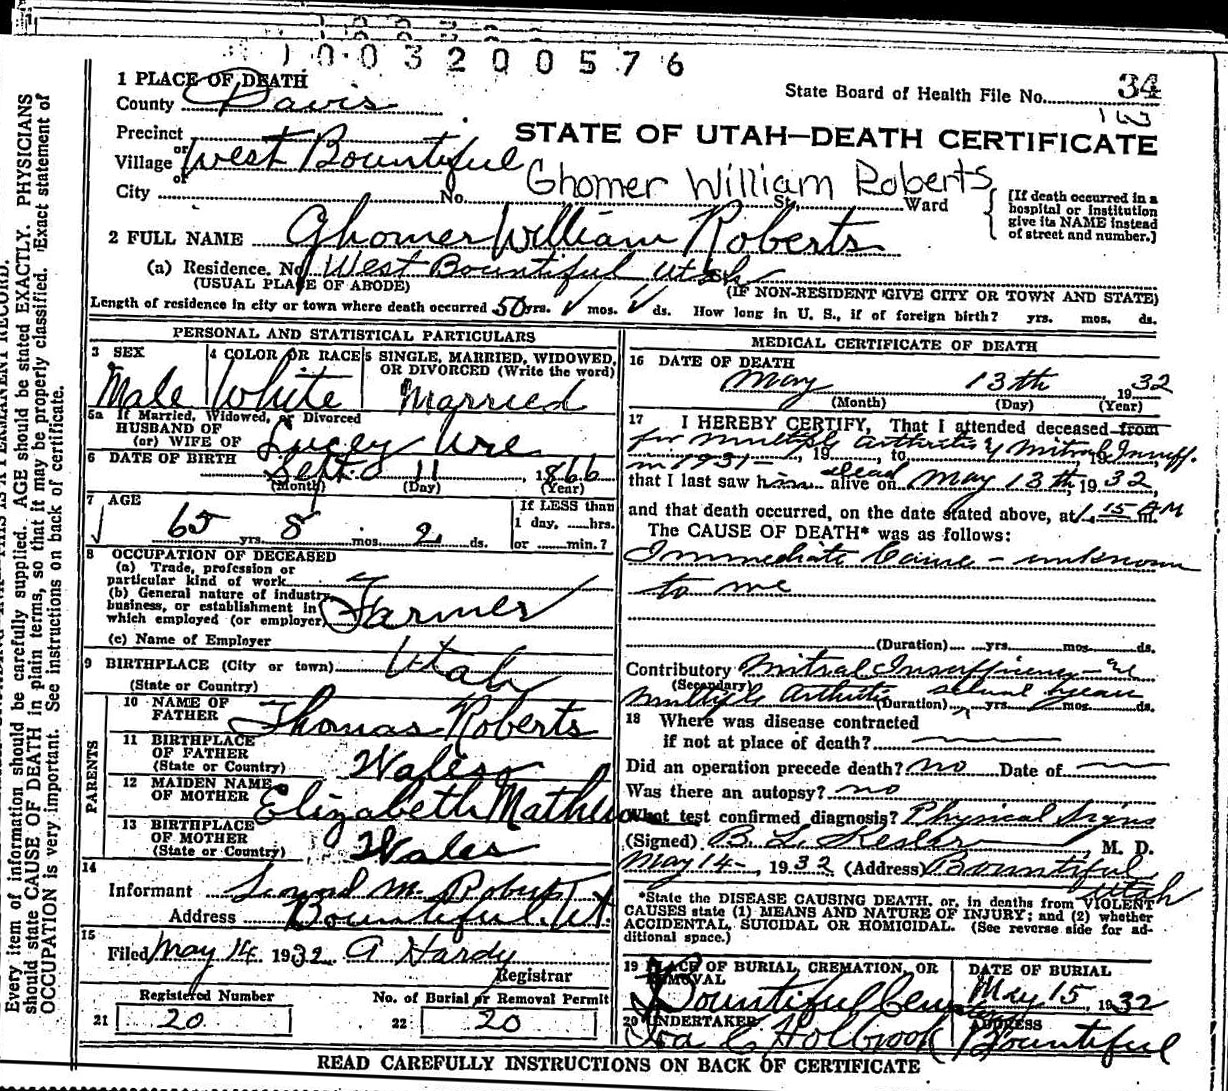 1003200576
1 PLACE OF DEATH
County Davis
State Board of Health File No. 34
163
Precinct
or
Village West Bountiful
or
City No. St. Ward
STATE OF UTAH—DEATH CERTIFICATE
Ghomer William Roberts
[If death occurred in a
hospital or institution
give its NAME instead
of street and number.]
2 FULL NAME Ghomer William Roberts
(a) Residence. No. West Bountiful Utah St.
(USUAL PLACE OF ABODE) (IF NON-RESIDENT GIVE CITY OR TOWN AND STATE)
Length of residence in city or town where death occurred 50 yrs. mos. ds. How long in U. S., if of foreign birth? yrs. mos. ds.
PERSONAL AND STATISTICAL PARTICULARS
3 SEX
Male
4 COLOR OR RACE
White
5 SINGLE, MARRIED, WIDOWED,
OR DIVORCED (Write the word)
Married
5a If Married, Widowed, or Divorced
HUSBAND OF
(or) WIFE OF Lucey Ure
6 DATE OF BIRTH Sept. 11 1866
(Month) (Day) (Year)
7 AGE
65 yrs. 8 mos. 2 ds.
If LESS than
1 day, ......hrs.
or ........min.?
8 OCCUPATION OF DECEASED
(a) Trade, profession or
particular kind of work
(b) General nature of industry,
business, or establishment in
which employed (or employer) Farmer
(c) Name of Employer
9 BIRTHPLACE (City or town) Utah
(State or Country)
PARENTS
10 NAME OF
FATHER Thomas Roberts
11 BIRTHPLACE
OF FATHER
(State or Country) Wales
12 MAIDEN NAME
OF MOTHER Elizabeth Mathews
13 BIRTHPLACE
OF MOTHER
(State or Country) Wales
14
Informant M. Roberts
Address Bountiful, Ut.
15
Filed May 14, 1932 A Hardy
Registrar
Registered Number
21 20
No. of Burial or Removal Permit
22 20
MEDICAL CERTIFICATE OF DEATH
16 DATE OF DEATH
May 13th, 1932
(Month) (Day) (Year)
17 I HEREBY CERTIFY, That I attended deceased from
for multiple arthritis & Mitral Insuff. , 19 , to , 19
in 1931-
that I last saw him alive on dead May 13th, 1932,
and that death occurred, on the date stated above, at 1.15 AM m.
The CAUSE OF DEATH* was as follows:
Immediate Cause - unknown
to me
(Duration) yrs. mos. ds.
Contributory Mitral Insufficiency -
(Secondary)
multiple arthritis several years
(Duration) yrs. mos. ds.
18 Where was disease contracted
if not at place of death?
Did an operation precede death? no Date of
Was there an autopsy? no
What test confirmed diagnosis? Physical Signs
(Signed) B. L. Kesler, M. D.
May 14-, 1932 (Address) Bountiful
Utah
*State the DISEASE CAUSING DEATH, or, in deaths from VIOLENT
CAUSES state (1) MEANS AND NATURE OF INJURY; and (2) whether
ACCIDENTAL, SUICIDAL OR HOMICIDAL. (See reverse side for ad-
ditional space.)
19 PLACE OF BURIAL, CREMATION, OR
REMOVAL
Bountiful Cemetery
DATE OF BURIAL
May 15, 1932
20 UNDERTAKER
Ira C Holbrook
ADDRESS
Bountiful
READ CAREFULLY INSTRUCTIONS ON BACK OF CERTIFICATE
Every item of information should be carefully supplied. AGE should be stated EXACTLY. PHYSICIANS
should state CAUSE OF DEATH in plain terms, so that it may be properly classified. Exact statement of
OCCUPATION is very important. See instructions on back of certificate.